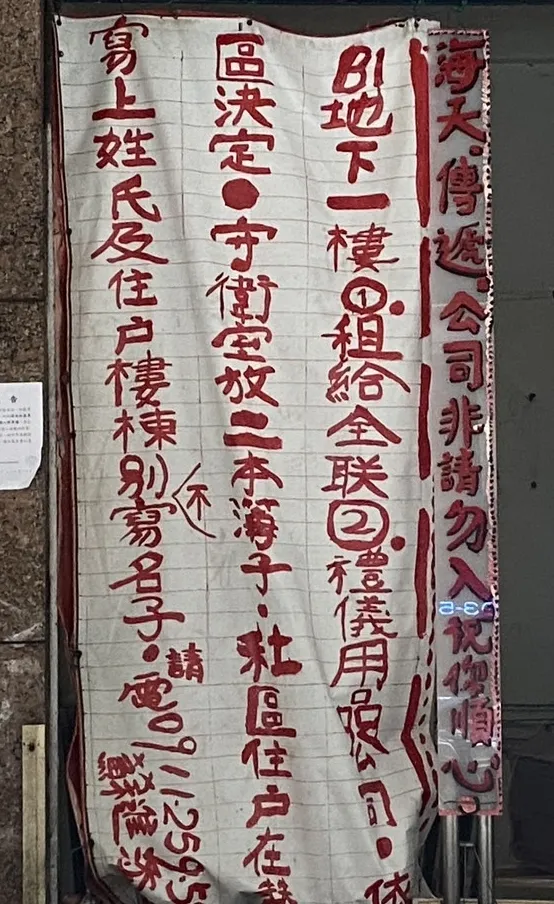 海天傳遞公司非請勿入祝您順心
B1地下一樓①租給全联②禮儀用品公司●依
區決定●守衛室放二本簿子·社區住户在
寫上姓氏及住户樓棟別不寫名子●請電0911.2595
蘇進